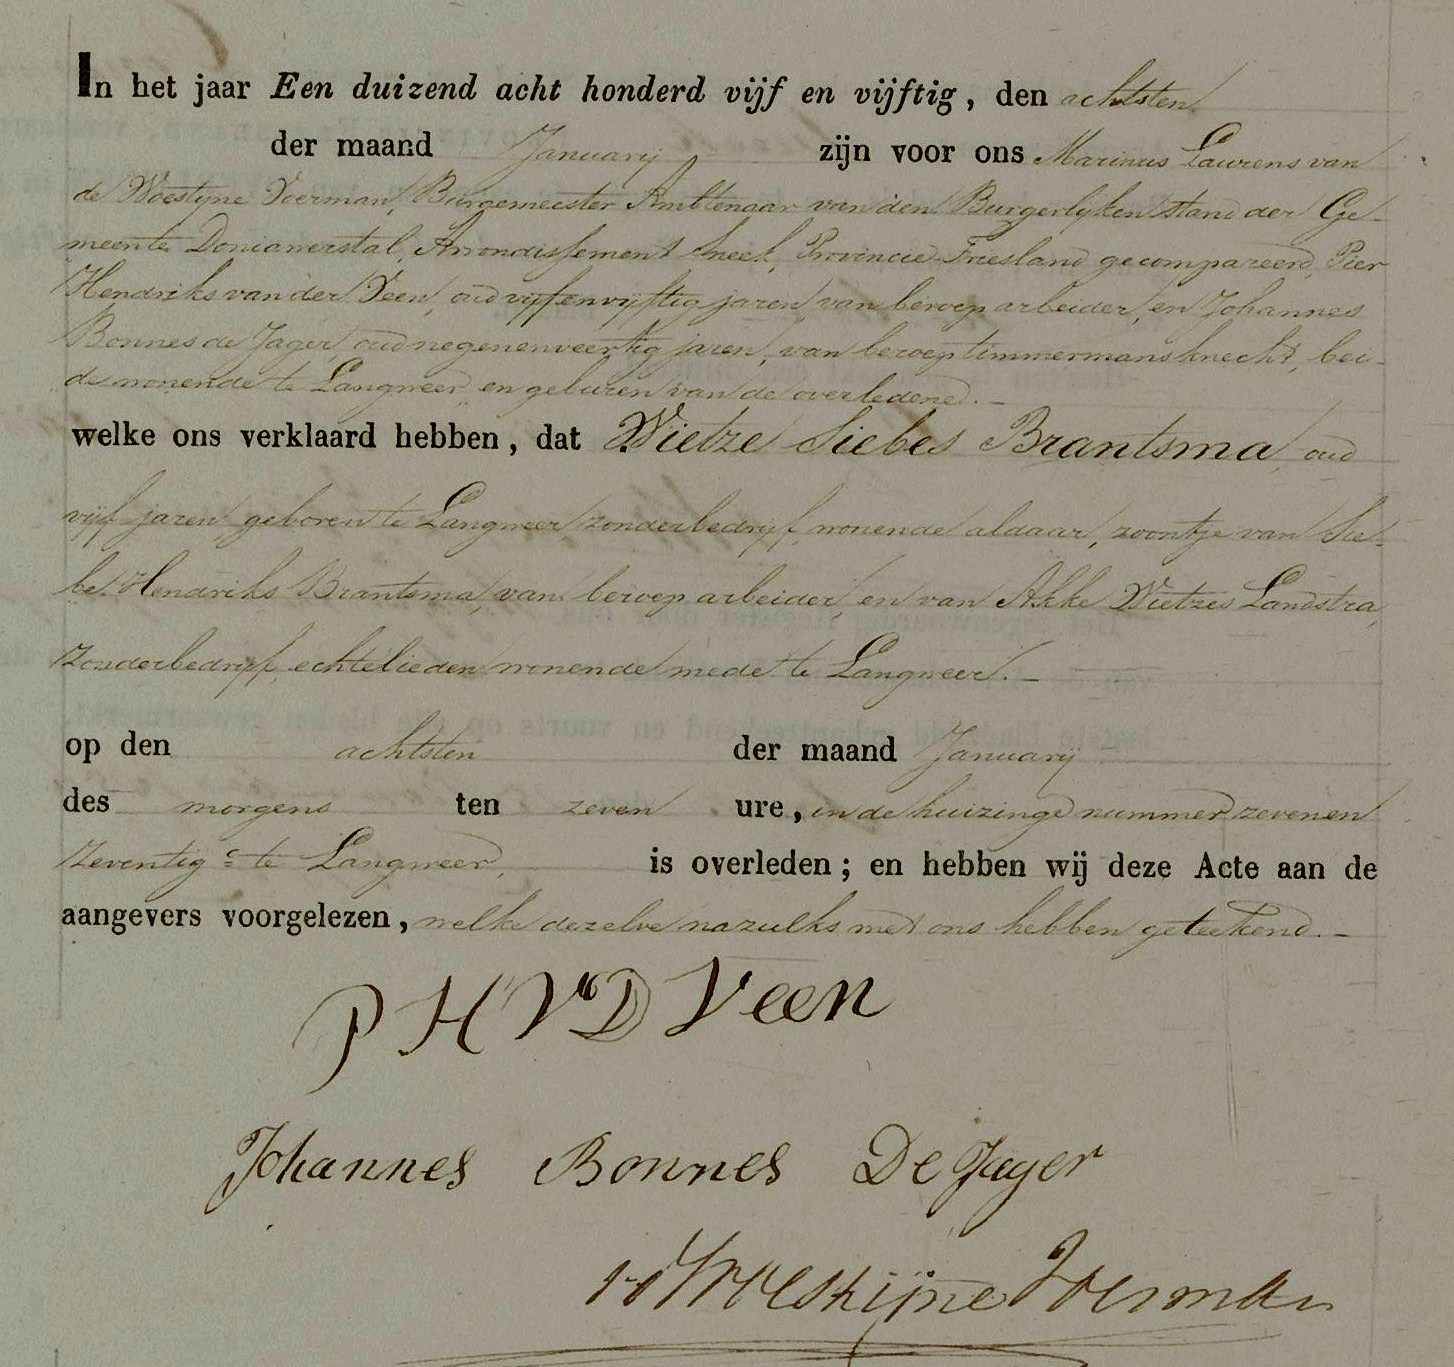 In het jaar Een duizend acht honderd vijf en vijftig, den achtsten
der maand Januarij zijn voor ons Marinus Laurens van
de Woestyne Voerman, Burgemeester Ambtenaar van den Burgerlyken stand der Ge-
meente Doniawerstal, Arrondissement Sneek, Provincie Friesland gecompareerd, Pier
Hendriks van der Veen, oud vyfenvyftig jaren, van beroep arbeider, en Johannes
Bonnes de Jager, oud negenenveertig jaren, van beroep timmermansknecht, bei-
de wonende te Langweer, en geburen van de overledene. –
welke ons verklaard hebben, dat Wietze Siebes Brantsma, oud
vijf jaren, geboren te Langweer, zonder bedryf, wonende aldaar, zoontje van Sie-
be Hendriks Brantsma, van beroep arbeider, en van Akke Wietzes Landstra,
zonder bedryf, echtelieden wonende mede te Langweer. –
op den achtsten der maand Januarij
des morgens ten zeven ure, in de huizinge nummer zevenen
zeventig c te Langweer, is overleden; en hebben wij deze Acte aan de
aangevers voorgelezen, welke dezelve na zulks met ons hebben geteekend. –
P H V D Veen
Johannes Bonnes De Jager
Woestijne Voerman